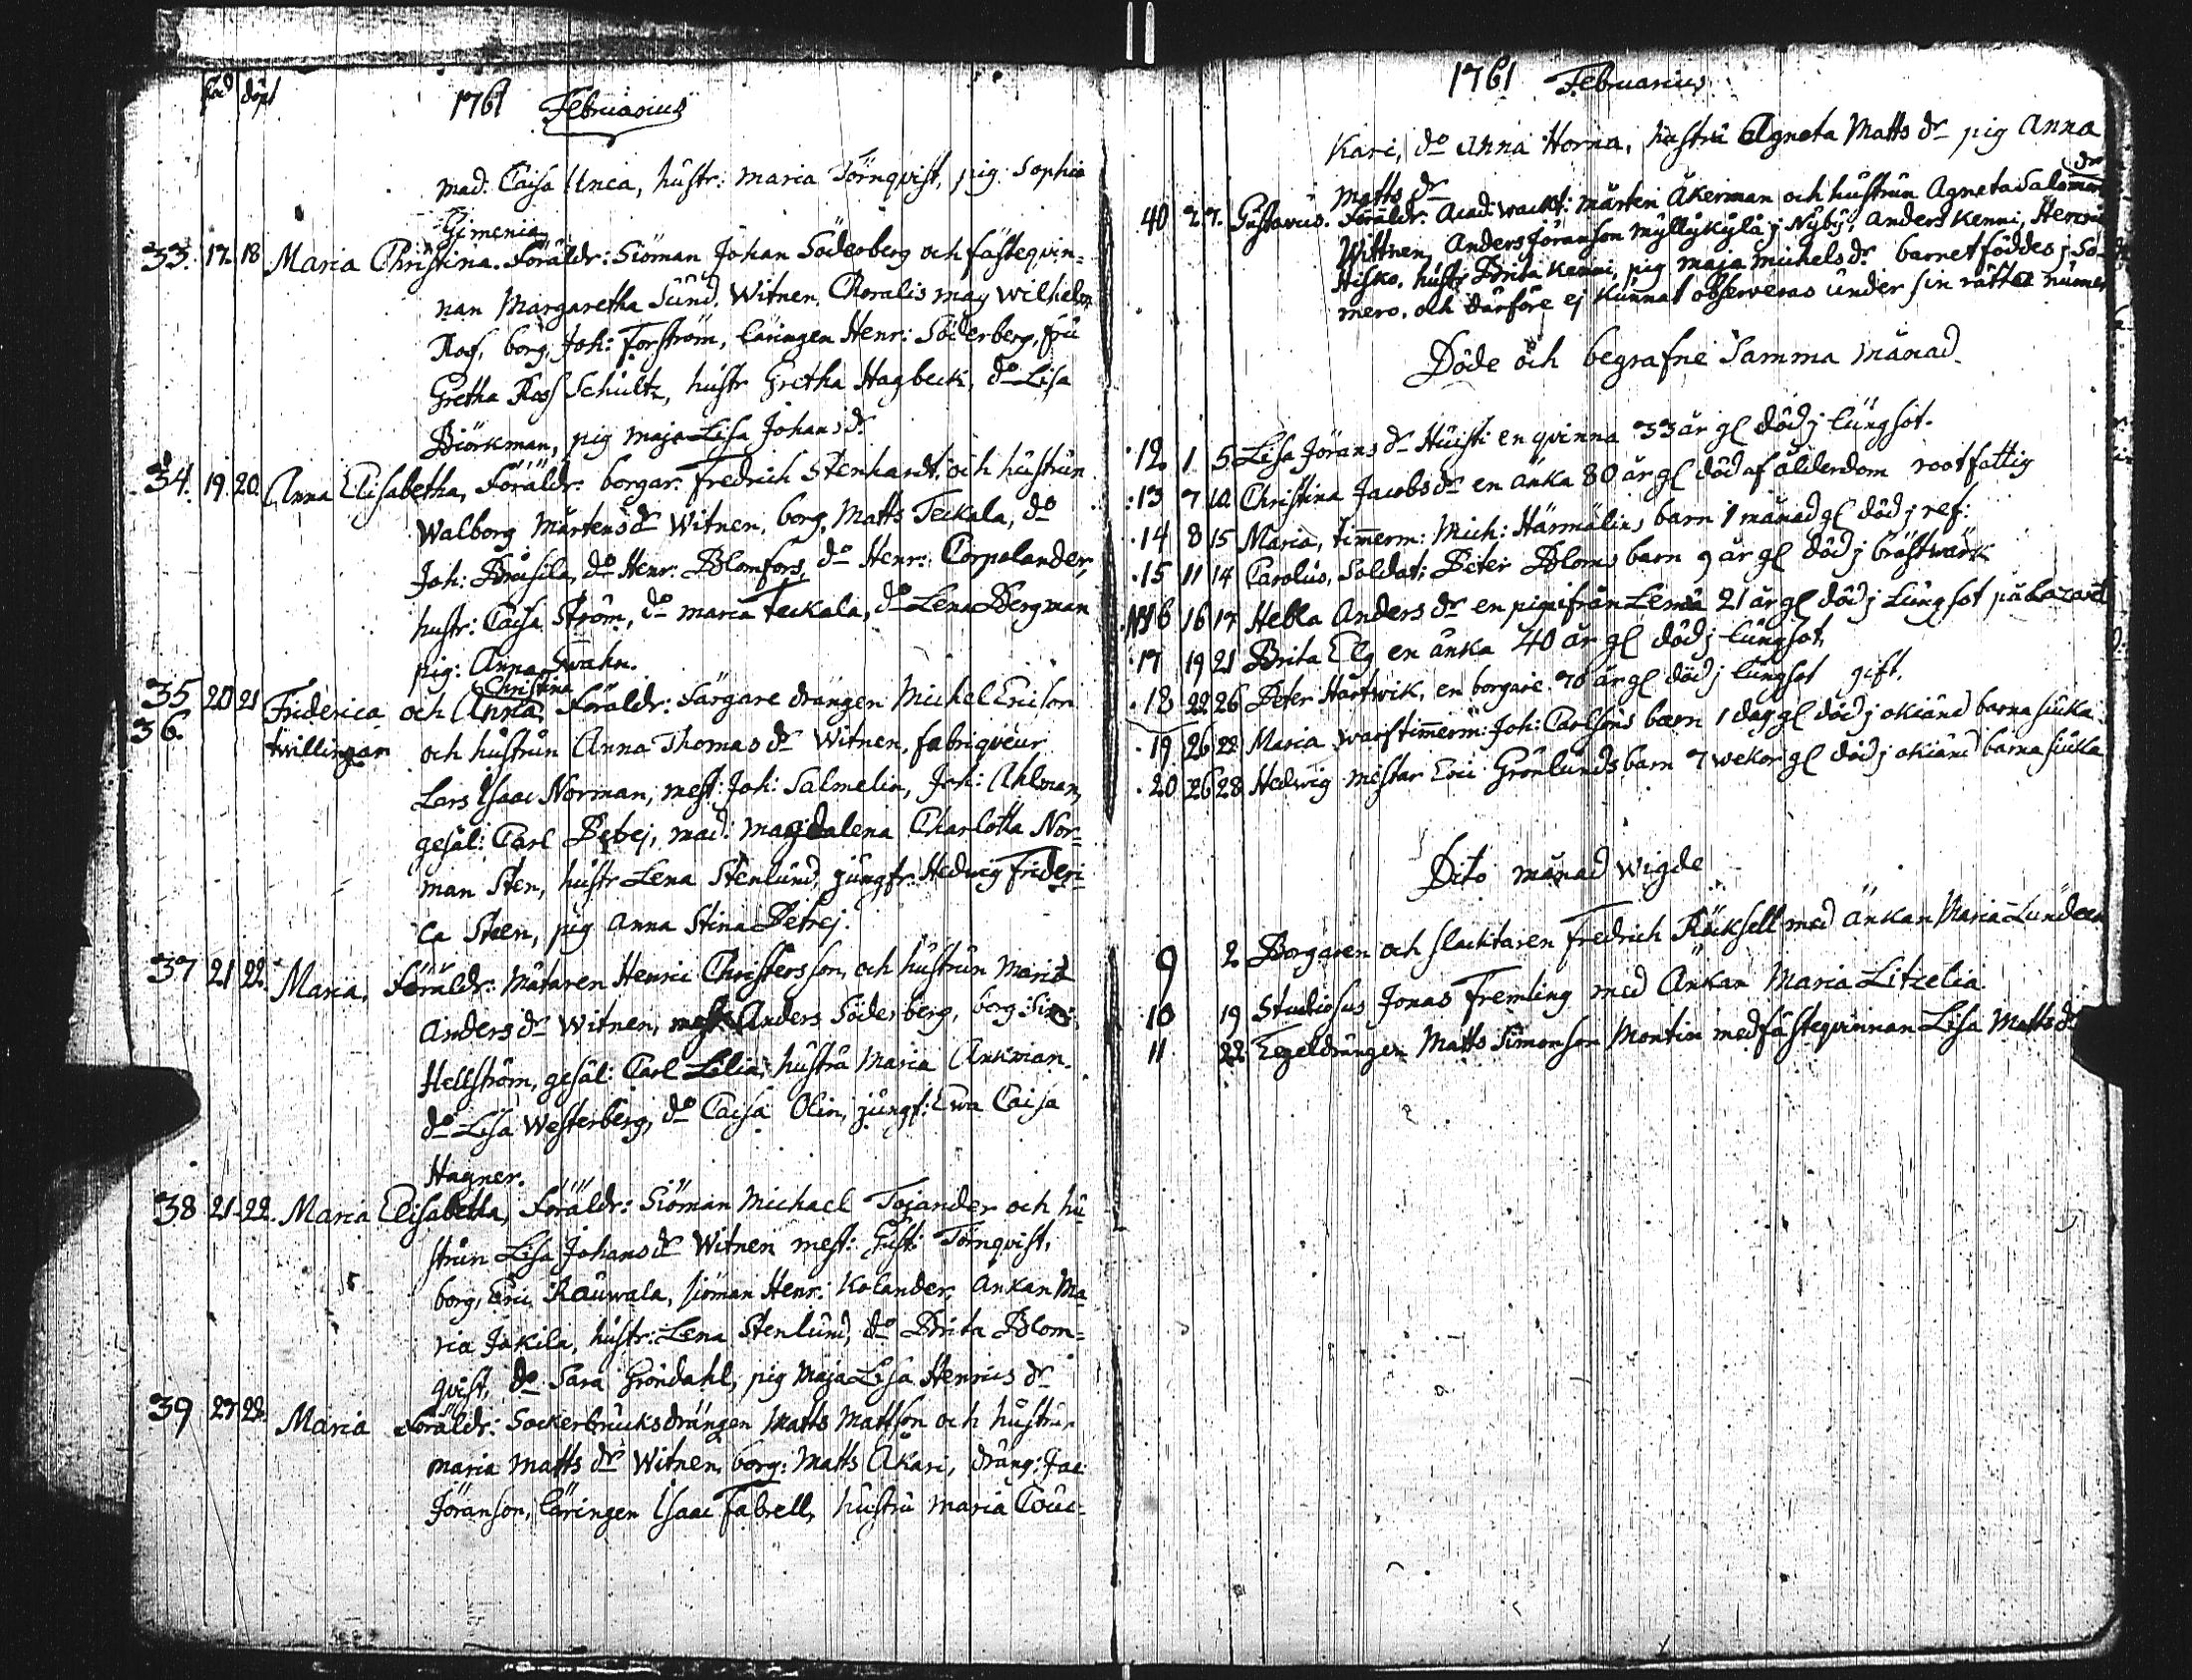 föd döpt
1761 Februarius
mad: Caisa Unca, hustr: maria Törnqvist, pig: Sophia
Gimenia,
33. 17. 18 Maria Christina. Föräldr: Siöman Johan Söderberg och fästeqvin=
nan Margaretha Sund. Witnen, Choralis mag Wilhelm
Ross, borg, Joh: Forström, läringen Henr: Söderberg, fru
Gretha Ross Schultz, hustr Gretha Hagbeck, do Lisa
Biörkman, pig maja Lisa Johans dr
34. 19. 20. Anna Elisabetha, Föräldr: borgar: Fredrich Stenhardt och hustrun
Walborg Mårtens dr Witnen, borg, Matts Teckala, do
Joh: Brusila, do Henr: Blomfors, do Henr: Corpolander,
hustr: Caisa Ström, do maria Teckala, do Lena Bergman
pig: Anna Swahn.
Christina
35 20 21 Friderica och Anna, Föräldr: Särgare drängen Michel Ericson
36. twillingar och hustrun Anna Thomas dr Witnen, fabriqveur
Lars Isaac Norman, mest: Joh: Salmelin, Joh: Ahlman,
gesäl: Carl Petrej, mad: Magdalena Charlotta Nor=
man Sten, hustr Lena Stenlund, jungfr: Hedwig Frideri=
ca Steen, pig Anna Stina Petrej.
37 21 22. Maria, Föräldr: Mätaren Henric Christersson, och hustrun Maria
Anders dr Witnen, mest: Anders Söderberg, borg: Sim:
Hellström, gesäl: Carl Lilia, hustru Maria Ankman.
do Lisa Westerberg, do Caisa Olin, jungf: Ewa Caisa
Hagner.
38 21 22. Maria Elisabetha, Föräldr: Siöman Michael Tojander och hu=
strun Lisa Johans dr Witnen mest: Gust: Törnqvist,
borg, Eric Rauwala, siöman Henr: Kolander, änkan Ma=
ria Jakila, hustr: Lena Stenlund, do Brita Blom=
qvist, do Sara Gröndahl, pig Maja Lisa Henrics dr
39 27 22. Maria Föräldr: Sockerbruksdrängen Matts Mattson och hustru,
maria Matts dr Witnen, borg: Matts Akari, dräng: Jac
Jöranson, läringen Isaac Fabrell, hustru maria Couc=
1761 Februarius
Kari, do Anna Horna, hustru Agneta Matts dr pig Anna
Matts dr
40 27. Gustavus. Föräldr: Acad: wackt: mårten Åkerman och hustrun Agneta Salomons dr
Wittnen, Anders Jöranson Myllykylä j Nyby, Anders Kenni, Henric
Hisko, hustr Brita Kenni, pig maja michels dr barnet föddes j So=
mero, och därföre ej kunnat observeras under sin rätta numer
Döde och begrafne Samma månad
12. 1 5 Lisa Jörans dr Huisti en qvinna 33 år gl död j lungsot.
13 7 10. Christina Jacobs dr en änka 80 år gl död af ålderdom rootfattig
14 8 15 Maria, timmerm: Mich: Härmälins barn 1 månad gl död j ref:
15 11 14 Carolus, Soldat: Peter Bloms barn 9 år gl död j bröstwärk
16 16 17 Hebla Anders dr en piga ifrån Lemå 21 år gl död j Lungsot på Lazaret
17 19 21 Brita Elg en änka 40 år gl död j lungsot
18 22 26 Peter Hartwik, en borgare 70 år gl död j lungsot gift.
19 26 28 Maria warfstimmerm: Joh: Carlsons barn 1 dag gl död j okiänd barna siuka
20 26 28 Hedwig mästar Eric Grönlunds barn 7 wekor gl död j okiänd barna siuka
Dito månad wigde
9 2. Borgaren och slacktaren Fredrich Röcksell med änkan Maria Lundeen
10 19 Studiosus Jonas Fremling med Änkan Maria Litzelia
11 22 Tegeldrängen Matts Simonson Montin med fästeqvinnan Lisa Matts dr